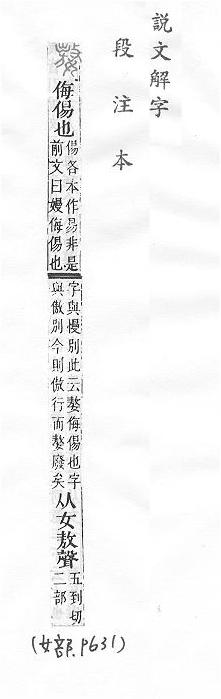 說文解字
段注本
嫯
侮㑥也
㑥各本作易非是
前文曰嫚侮㑥也
字與慢別此云嫯侮㑥也字
與傲別今則傲行而嫯廢矣
从女敖聲
五到切
二部
(女部.P631)